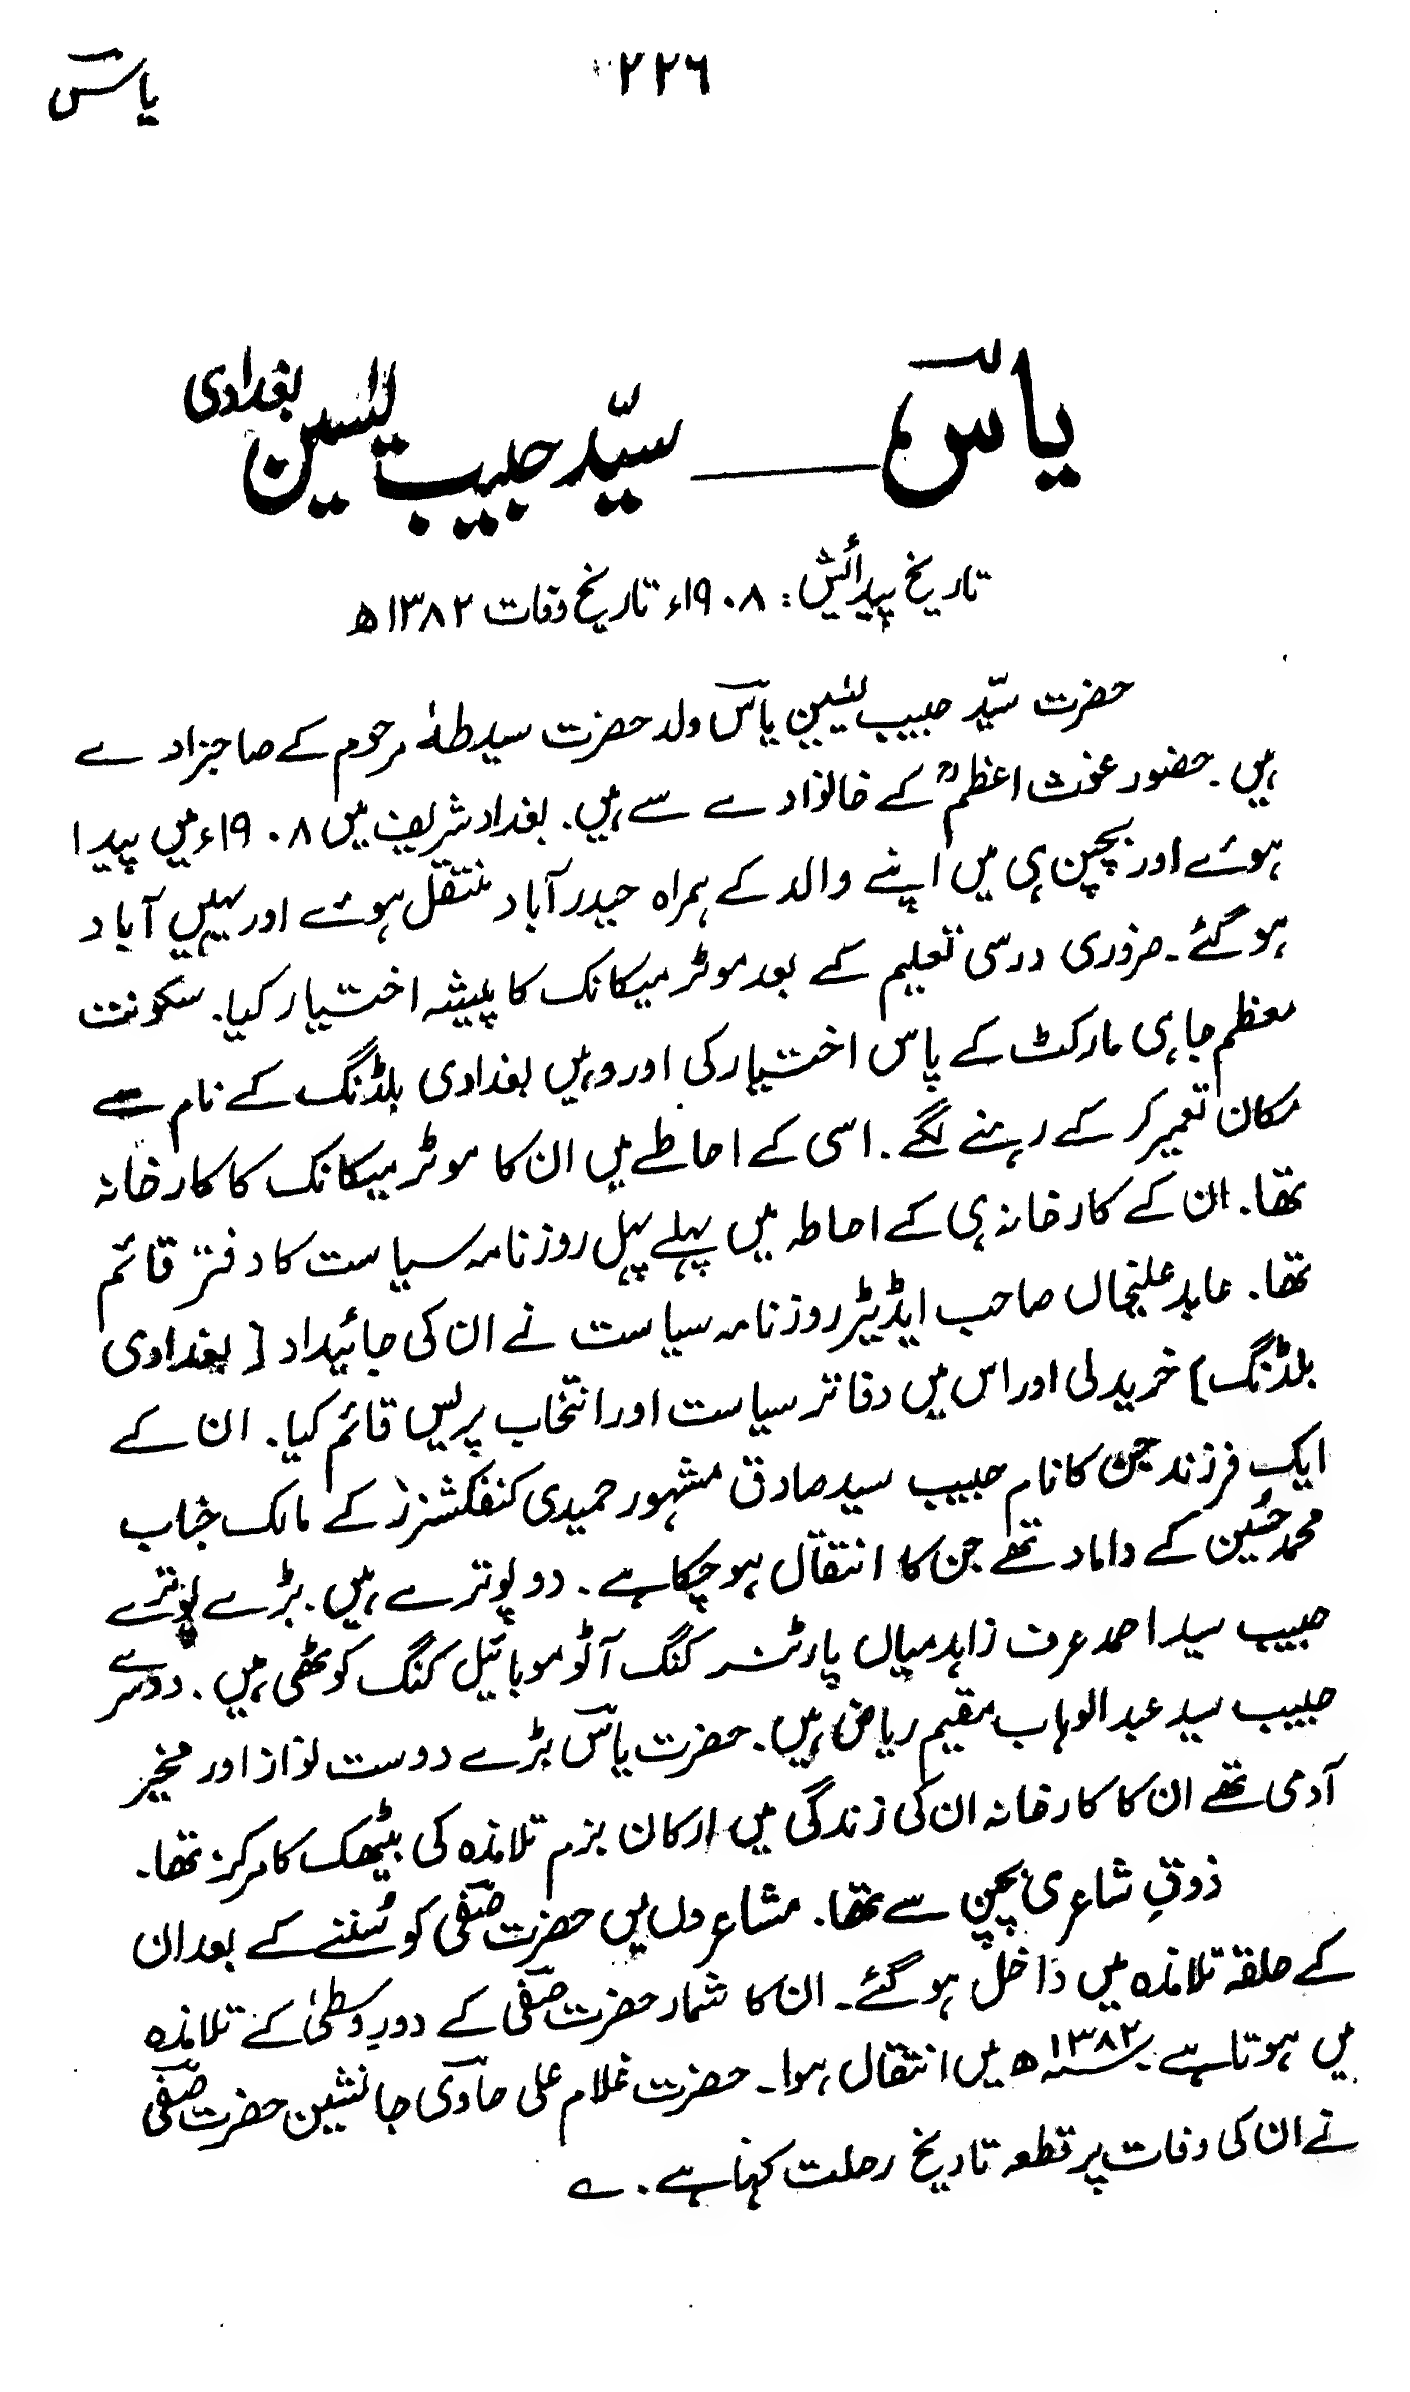 یاسؔ
۲۲۶
یاسؔ ــــــ سیّد حبیب یٰسین بغدادی
تاریخ پیدائش: ۱۹۰۸ء تاریخ وفات ۱۳۸۲ھ
حضرت سیّد حبیب یٰسین یاسؔ ولد حضرت سید طہٰ مرحوم کے صاحبزادے
ہیں۔ حضور غوث اعظمؒ کے خانوادے سے ہیں۔ بغداد شریف میں ۱۹۰۸ء میں پیدا
ہوئے اور بچپن ہی میں اپنے والد کے ہمراہ حیدرآباد منتقل ہوئے اور یہیں آباد
ہو گئے۔ ضروری درسی تعلیم کے بعد موٹر میکانک کا پیشہ اختیار کیا۔ سکونت
معظم جاہی مارکٹ کے پاس اختیار کی اور وہیں بغدادی بلڈنگ کے نام سے
مکان تعمیر کر کے رہنے لگے۔ اسی کے احاطے میں ان کا موٹر میکانک کا کارخانہ
تھا۔ ان کے کارخانہ ہی کے احاطہ میں پہلے پہل روزنامہ سیاست کا دفتر قائم
تھا۔ عابد علیخاں صاحب ایڈیٹر روزنامہ سیاست نے ان کی جائیداد [بغدادی
بلڈنگ] خرید لی اور اس میں دفاتر سیاست اور انتخاب پریس قائم کیا۔ ان کے
ایک فرزند جن کا نام حبیب سید صادق مشہور حمیدی کنفکشنرز کے مالک جناب
محمد حُسین کے داماد تھے جن کا انتقال ہو چکا ہے۔ دو پوترے ہیں۔ بڑے پوترے
حبیب سید احمد عرف زاہد میاں پارٹنر کنگ آٹو موبائیل کنگ کوٹھی ہیں۔ دوسرے
حبیب سید عبدالوہاب مقیم ریاض ہیں۔ حضرت یاسؔ بڑے دوست نواز اور مخیر
آدمی تھے ان کا کارخانہ ان کی زندگی میں ارکان بزم تلامذہ کی بیٹھک کا مرکز تھا۔
ذوقِ شاعری بچپن سے تھا۔ مشاعروں میں حضرت صفیؔ کو سُننے کے بعد ان
کے حلقہ تلامذہ میں داخل ہو گئے۔ ان کا شمار حضرت صفیؔ کے دورِ وسطیٰ کے تلامذہ
میں ہوتا ہے۔ سنہ ۱۳۸۲ھ میں انتقال ہوا۔ حضرت غلام علی حاویؔ جانشین حضرت صفیؔ
نے ان کی وفات پر قطعہ تاریخ رحلت کہا ہے۔ ے